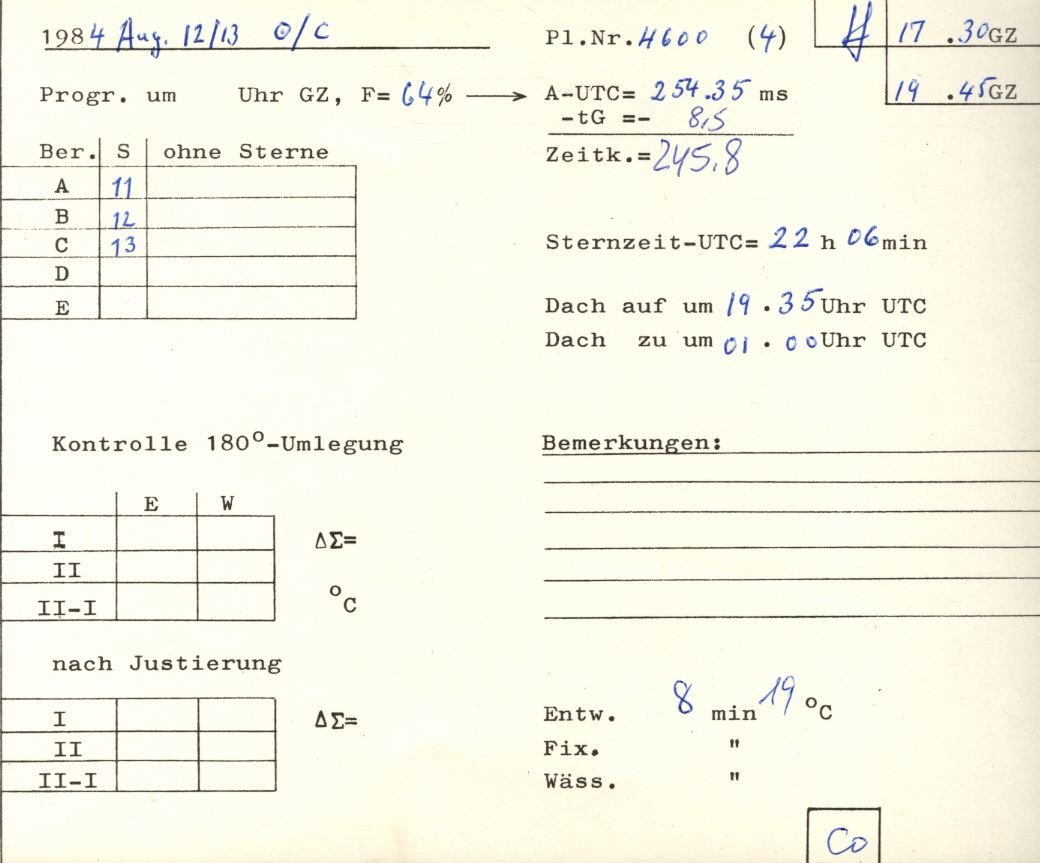 1984 Aug. 12/13 O/C
Pl.Nr. 4600 (4)
17 .30GZ
19 .45GZ
Progr. um Uhr GZ, F= 64% → A-UTC= 254.35 ms
-tG =- 8,5
Zeitk.= 245,8
Ber. S ohne Sterne
A 11
B 12
C 13
D
E
Sternzeit-UTC= 22 h 06min
Dach auf um 19 . 35 Uhr UTC
Dach zu um 01 . 00 Uhr UTC
Kontrolle 180°-Umlegung
E W
I ΔΣ=
II
II-I °C
nach Justierung
I ΔΣ=
II
II-I
Bemerkungen:
Entw. 8 min 19 °C
Fix. "
Wäss. "
Co